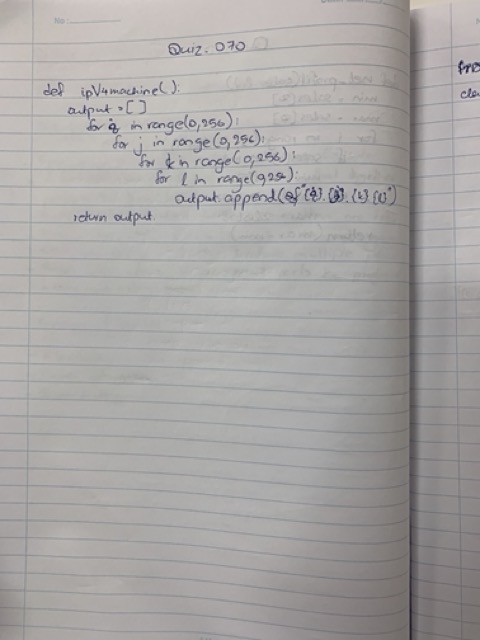 No:
Quiz. 070
def ipV4machine():
output = []
for i in range(0,256):
for j in range(0,256):
for k in range(0,256):
for l in range(0,256):
output.append(f"{i}.{j}.{k}.{l}")
return output